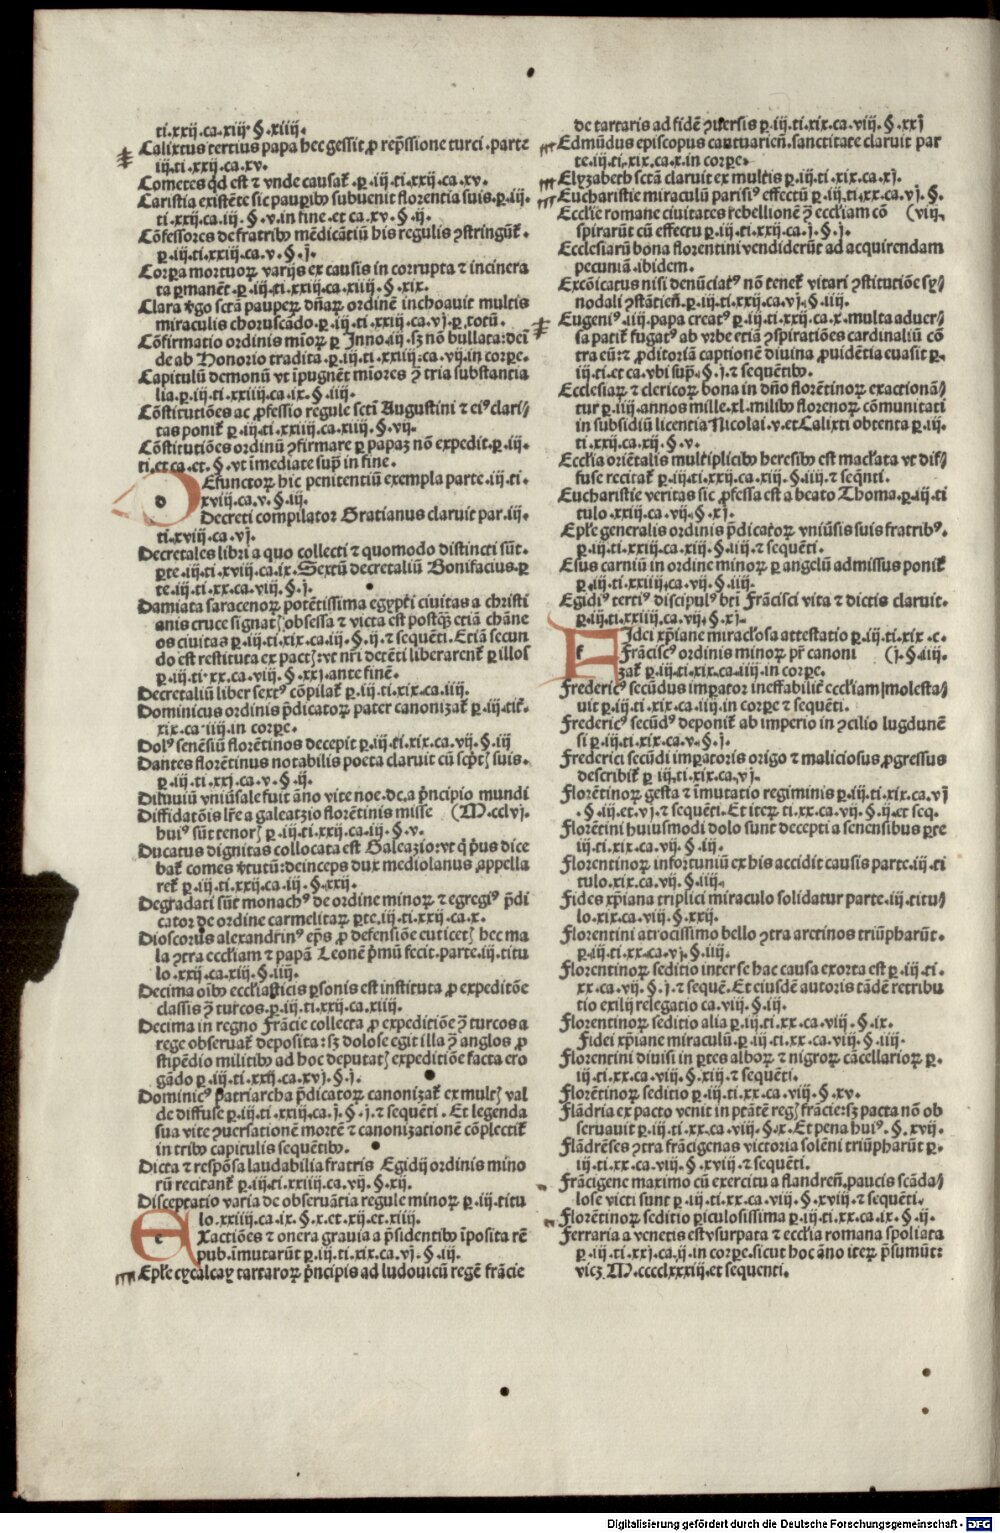 ti.xxij.ca.xiij.§.xiiij.
Calixtus tertius papa hec gessit ꝓ rep̄ssione turci.parte
iij.ti.xxij.ca.xv.
Cometes qd est ⁊ vnde causat̄.p̱.iij.ti.xxij.ca.xv.
Caristia existēte sic paupibꝰ subuenit florentia suis.p̱.iij.
ti.xxij.ca.iij.§.v.in fine.et ca.xv.§.ij.
Cōfessores de fratribꝰ mēdicātiū his regulis ꝯstringūt̄.
p̱.iij.ti.xxiij.ca.v.§.j.
Corpa mortuoꝝ varijs ex causis in corrupta ⁊ incinera
ta p̱manēt.p̱.iij.ti.xxij.ca.xiiij.§.xix.
Clara v̇go sctā paupeꝝ dn̄aꝝ ordinē inchoauit multis
miraculis choruscādo.p̱.iij.ti.xxiij.ca.vj.p̱.totū.
Cōfirmatio ordinis mioꝝ p̱ Inno.iij.sꝫ nō bullata:dei
de ab Honorio tradita.p̱.iij.ti.xxiiij.ca.vij.in corpe.
Capitulū demonū vt īpugnēt miores ꝫ tria substantia
lia.p̱.iij.ti.xxiiij.ca.ix.§.iij.
Cōstitutiōes ac ꝓfessio regule scti Augustini ⁊ eiꝰ clari/
tas ponit̄ p̱.iij.ti.xxiiij.ca.xiiij.§.vij.
Cōstitutiōes ordinū ꝯfirmare p̱ papaꝫ nō expedit.p̱.iij.
ti.et ca.et.§.vt īmediate sup̄ in fine.
d Efunctoꝝ hic penitentiū exempla parte.iij.ti.
xviij.ca.v.§.iij.
Decreti compilator Gratianus claruit par.iij.
ti.xviij.ca.vj.
Decretales libri a quo collecti ⁊ quomodo distincti sūt.
p̱te.iij.ti.xviij.ca.ix.Sextū decretaliū Bonifacius.p̱
te.iij.ti.xx.ca.viij.§.j.
Damiata saracenoꝝ potētissima egypti ciuitas a christi
anis cruce signatꝭ obsessa ⁊ victa est postqꝫ etiā chāne
os ciuitas p̱.iij.ti.xix.ca.iij.§.ij.⁊ sequēti.Etiā secun
do est restituta ex pactꝭ:vt nr̄i detēti liberarent̄ p̱ illos
p̱.iij.ti.xx.ca.viij.§.xxj.ante finē.
Decretaliū liber sextꝰ cōpilat̄ p̱.iij.ti.xix.ca.iiij.
Dominicus ordinis p̄dicatoꝝ pater canonizat̄ p̱.iij.tit̄.
xix.ca.iiij.in corpe.
Dolꝰ senēsiū florētinos decepit p̱.iij.ti.xix.ca.vij.§.iij
Dantes florētinus notabilis poeta claruit cū scptꝭ suis.
p̱.iij.ti.xxj.ca.v.§.ij.
Diluuiū vniūsale fuit āno vite noe.dc.a pncipio mundi
Diffidatōis lr̄e a galeatzio florētinis misse (M.cclvj.
huiꝰ sūt tenorꝭ p̱.iij.ti.xxij.ca.iij.§.v.
Ducatus dignitas collocata est Galeazio:vt q̇ pꝰus dice
bat̄ comes v̇tutū:deinceps dux mediolanus appella
ret̄ p̱.iij.ti.xxij.ca.iij.§.xxij.
Degradati sūt monachꝰ de ordine minoꝝ ⁊ egregiꝰ p̄di
cator de ordine carmelitaꝝ p̱te.iij.ti.xxij.ca.x.
Dioscorus alexandrinꝰ ep̄s ꝓ defensiōe euticetꝭ hec ma
la ꝯtra eccl̄iam ⁊ papā Leonē p̄mū fecit.parte.iij.titu
lo.xxij.ca.xiij.§.iiij.
Decima oībꝰ eccl̄iasticis p̱sonis est instituta ꝓ expeditōe
classis ꝫ turcos.p̱.iij.ti.xxij.ca.xiiij.
Decima in regno Frācie collecta ꝓ expeditiōe ꝫ turcos a
rege obseruat̄ deposita:sꝫ dolose egit illa ꝫ anglos ꝓ
stipēdio militibꝰ ad hoc deputatꝭ expeditiōe facta ero
gādo p̱.iij.ti.xxij.ca.xvj.§.j.
Dominicꝰ patriarcha p̄dicatoꝝ canonizat̄ ex multꝭ val
de diffuse p̱.iij.ti.xxiij.ca.j.§.j.⁊ sequēti.Et legenda
sua vite ꝯuersationē mortē ⁊ canonizationē cōplectit̄
in tribꝰ capitulis sequētibꝰ.
Dicta ⁊ respōsa laudabilia fratris Egidij ordinis mino
rū recitant̄ p̱.iij.ti.xxiiij.ca.vij.§.xij.
Disceptatio varia de obseruātia regule minoꝝ p̱.iij.titu
lo.xxiiij.ca.ix.§.x.et.xij.et.xiiij.
e Xactiōes ⁊ onera grauia a p̄sidentibꝰ īposita rē
pub.īmutarūt p̱.iij.ti.xix.ca.vj.§.iij.
Ep̄le cycalcay tartaroꝝ pncipis ad ludouicū regē frācie
de tartaris ad fidē ꝯuersis p̱.iij.ti.xix.ca.viij.§.xxj
Edmūdus episcopus cantuarien̄.sanctitate claruit par
te.iij.ti.xix.ca.x.in corpe.
Elyzabeth sctā claruit ex multis p̱.iij.ti.xix.ca.xj.
Eucharistie miraculū parisiꝰ effectū p̱.iij.ti.xx.ca.vj.§.
Eccl̄ie romane ciuitates rebellionē ꝫ eccl̄iam cō (vij.
spirarūt cū effectu p̱.iij.ti.xxij.ca.j.§.j.
Ecclesiarū bona florentini vendiderūt ad acquirendam
pecuniā.ibidem.
Excōicatus nisi denūciatꝰ nō tenet̄ vitari ꝯstitutiōe sy/
nodali ꝯstātien̄.p̱.iij.ti.xxij.ca.vj.§.iiij.
Eugeniꝰ.iiij.papa creatꝰ p̱.iij.ti.xxij.ca.x.multa aduer/
sa patit̄ fugatꝰ ab vrbe etiā ꝯspiratiōes cardinaliū cō
tra eū:⁊ ꝓditoriā captionē diuina ꝓuidētia euasit p̱.
iij.ti.et ca.vbi sup̄.§.j.⁊ sequētibꝰ.
Ecclesiaꝝ ⁊ clericoꝝ bona in dn̄o florētinoꝝ exactionā/
tur p̱.iiij.annos mille.xl.milibꝰ florenoꝝ cōmunitati
in subsidiū licentia Nicolai.v.et Calixti obtenta p̱.iij.
ti.xxij.ca.xij.§.v.
Eccl̄ia oriētalis multiplicibꝰ heresibꝰ est maclata vt dif/
fuse recitat̄ p̱.iij.ti.xxij.ca.xiij.§.iiij.⁊ seqn̄ti.
Eucharistie veritas sic ꝓfessa est a beato Thoma.p̱.iij.ti
tulo.xxiij.ca.vij.§.xj.
Ep̄le generalis ordinis p̄dicatoꝝ vniūsis suis fratribꝰ.
p̱.iij.ti.xxiij.ca.xij.§.iiij.⁊ sequēti.
Esus carniū in ordine minoꝝ p̱ angelū admissus ponit̄
p̱.iij.ti.xxiiij.ca.vij.§.iiij.
Egidiꝰ tertiꝰ discipulꝰ bti Frācisci vita ⁊ dictis claruit.
p̱.iij.ti.xxiiij.ca.vij.§.xj.
f Idei xp̄iane miracl̄osa attestatio p̱.iij.ti.xix.c.
Frāciscꝰ ordinis minoꝝ pr̄ canoni (j.§.iiij.
zat̄ p̱.iij.ti.xix.ca.iiij.in corpe.
Fredericꝰ secūdus imp̱ator ineffabilit̄ eccl̄iam molesta/
uit p̱.iij.ti.xix.ca.iiij.in corpe ⁊ sequēti.
Fredericꝰ secūdꝰ deponit̄ ab imperio in ꝯcilio lugdunē
si p̱.iij.ti.xix.ca.v.§.j.
Frederici secūdi imp̱atoris origo ⁊ maliciosus ꝓgressus
describit̄ p̱.iij.ti.xix.ca.vj.
Florētinoꝝ gesta ⁊ īmutatio regiminis p̱.iij.ti.xix.ca.vj
§.iij.et.vj.⁊ sequēti.Et iteꝝ ti.xx.ca.vij.§.ij.et seq.
Florētini huiusmodi dolo sunt decepti a senensibus p̱te
iij.ti.xix.ca.vij.§.iij.
Florētinoꝝ infortuniū ex his accidit causis parte.iij.ti
tulo.xix.ca.vij.§.iiij.
Fides xp̄iana triplici miraculo solidatur parte.iij.titu/
lo.xix.ca.viij.§.xxij.
Florentini atrocissimo bello ꝯtra aretinos triūpharūt.
p̱.iij.ti.xx.ca.vj.§.iiij.
Florētinoꝝ seditio inter se hac causa exorta est p̱.iij.ti.
xx.ca.vij.§.j.⁊ sequē.Et eiusdē autoris tādē retribu
tio exilij relegatio ca.viij.§.iij.
Florētinoꝝ seditio alia p̱.iij.ti.xx.ca.viij.§.ix.
Fidei xp̄iane miraculū.p̱.iij.ti.xx.ca.viij.§.iiij.
Florentini diuisi in p̱tes alboꝝ ⁊ nigroꝝ cācellarioꝝ p̱.
iij.ti.xx.ca.viij.§.xij.⁊ sequēti.
Florētinoꝝ seditio p̱.iij.ti.xx.ca.viij.§.xv.
Flādria ex pacto venit in ptātē regꝭ frācie:sꝫ pacta nō ob
seruauit p̱.iij.ti.xx.ca.viij.§.x.Et pena huiꝰ.§.xvij.
Flādrēses ꝯtra frācigenas victoria solēni triūpharūt p̱.
iij.ti.xx.ca.viij.§.xviij.⁊ sequēti.
Frācigene maximo cū exercitu a flandren̄.paucis scāda/
lose victi sunt p̱.iij.ti.xx.ca.viij.§.xviij.⁊ sequēti.
Florētinoꝝ seditio piculosissima p̱.iij.ti.xx.ca.ix.§.ij.
Ferraria a venetis est vsurpata ⁊ eccl̄ia romana spoliata
p̱.iij.ti.xxj.ca.ij.in corpe.sicut hoc āno iteꝝ p̄sumūt:
vicꝫ.M.cccclxxxiij.et sequenti.
Digitalisierung gefördert durch die Deutsche Forschungsgemeinschaft - DFG